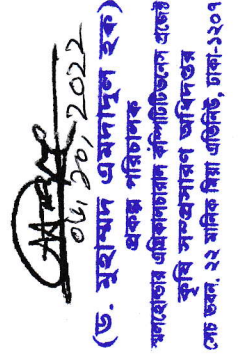 ০৬.১০.২০২২
(ড. মুহাম্মদ এমদাদুল হক)
প্রকল্প পরিচালক
স্মলহোল্ডার এগ্রিকালচারাল কম্পিটিটিভনেস প্রজেক্ট
কৃষি সম্প্রসারণ অধিদপ্তর
সেচ ভবন, ২২ মানিক মিয়া এভিনিউ, ঢাকা-১২০৭